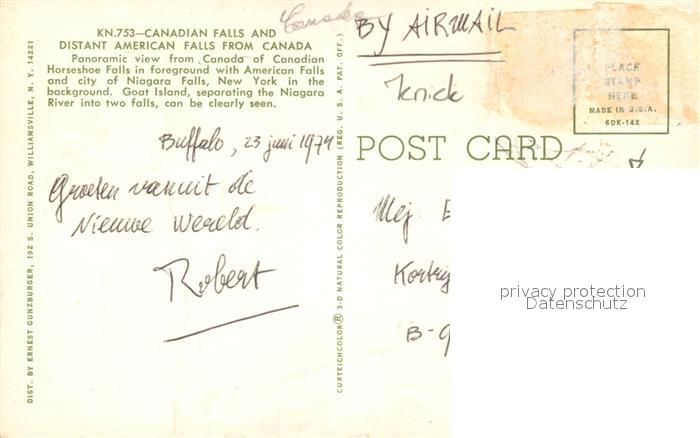 Canada
KN.753—CANADIAN FALLS AND
DISTANT AMERICAN FALLS FROM CANADA
Panoramic view from Canada of Canadian
Horseshoe Falls in foreground with American Falls
and city of Niagara Falls, New York in the
background. Goat Island, separating the Niagara
River into two falls, can be clearly seen.
Buffalo, 23 juni 1974
Groeten vanuit de
Nieuwe Wereld.
Robert
DIST. BY ERNEST GUNZBURGER, 192 S. UNION ROAD, WILLIAMSVILLE, N. Y. 14221
CURTEICHCOLOR® 3-D NATURAL COLOR REPRODUCTION (REG. U. S. A. PAT. OFF.)
BY AIRMAIL
PLACE
STAMP
HERE
MADE IN U.S.A.
6DK-142
POST CARD
Mej.
Kortry
B-9
privacy protection
Datenschutz